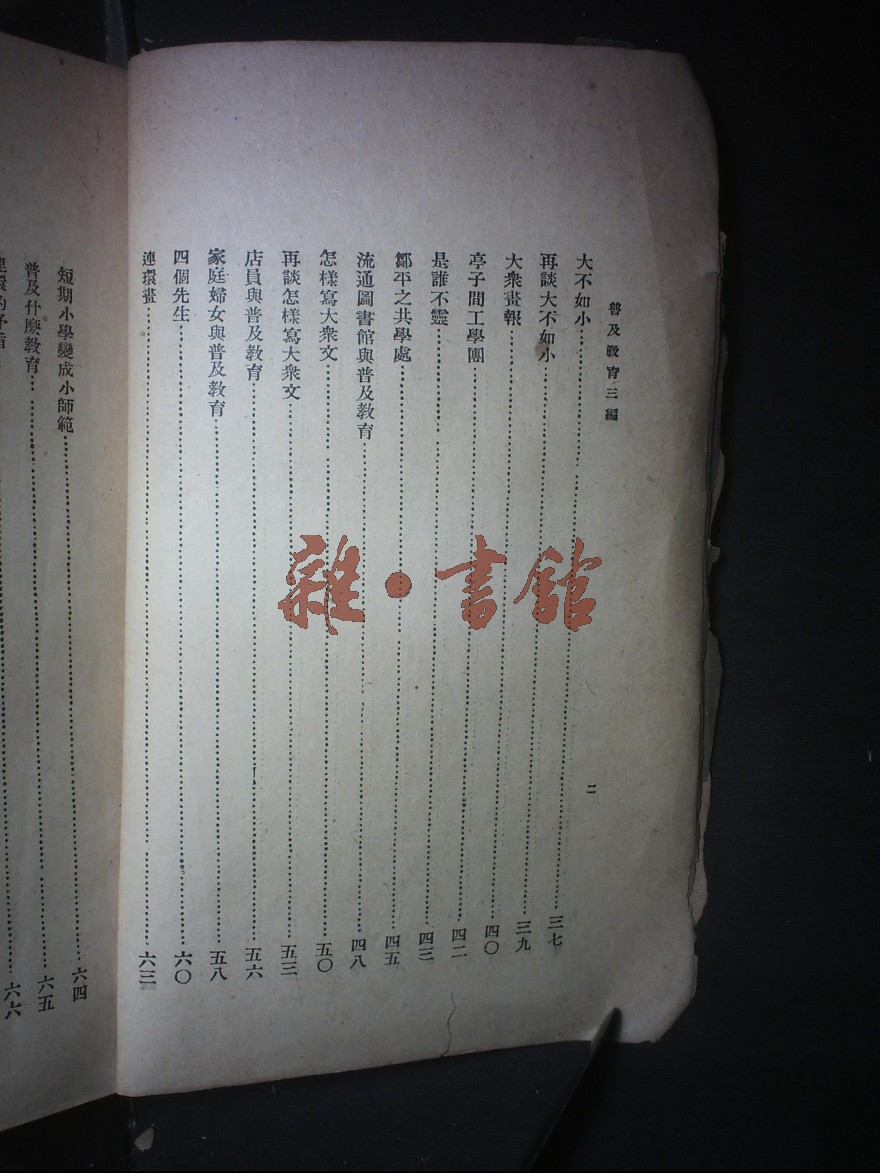 普及教育三編
二
大不如小……三七
再談大不如小……三九
大衆畫報……四〇
亭子間工學團……四二
是誰不靈……四三
鄒平之共學處……四五
流通圖書館與普及教育……四八
怎樣寫大衆文……五〇
再談怎樣寫大衆文……五三
店員與普及教育……五六
家庭婦女與普及教育……五八
四個先生……六〇
連環畫……六三
短期小學變成小師範……六四
普及什麼教育……六五
連環的矛盾……六六
雜·書館